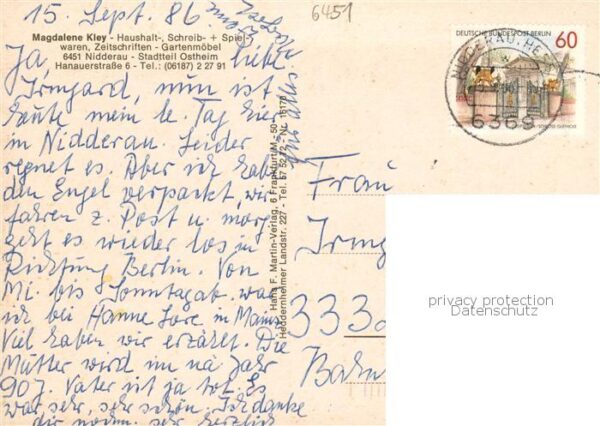 15. Sept. 86
6451
Magdalene Kley - Haushalt-, Schreib- + Spiel-
waren, Zeitschriften - Gartenmöbel
6451 Nidderau - Stadtteil Ostheim
Hanauerstraße 6 - Tel.: (06187) 2 27 91
Ja, liebe
Irmgard, nun ist
heute mein le. Tag hier
in Nidderau. Leider
regnet es. Aber ich hab
den Engel verpackt, wir
fahren z. Post u. morg.
geht es wieder los in
Richtung Berlin. Von
Mi. bis Sonntagab. war
ich bei Hanne Lore in Mainz
Viel haben wir erzählt. Die
Mutter wird im nä Jahr
90J. Vater ist ja tot. Es
war sehr, sehr schön. Ich danke
dir nochm. sehr herzlich
Hans F. Martin-Verlag, 6 Frankfurt/M - 50
Heddernheimer Landstr. 227 - Tel. 57 52 72 - Nr. 15173
DEUTSCHE BUNDESPOST BERLIN
60
NIDDERAU, HESS
6369
Frau
Irmg
3330
Bahn
privacy protection
Datenschutz